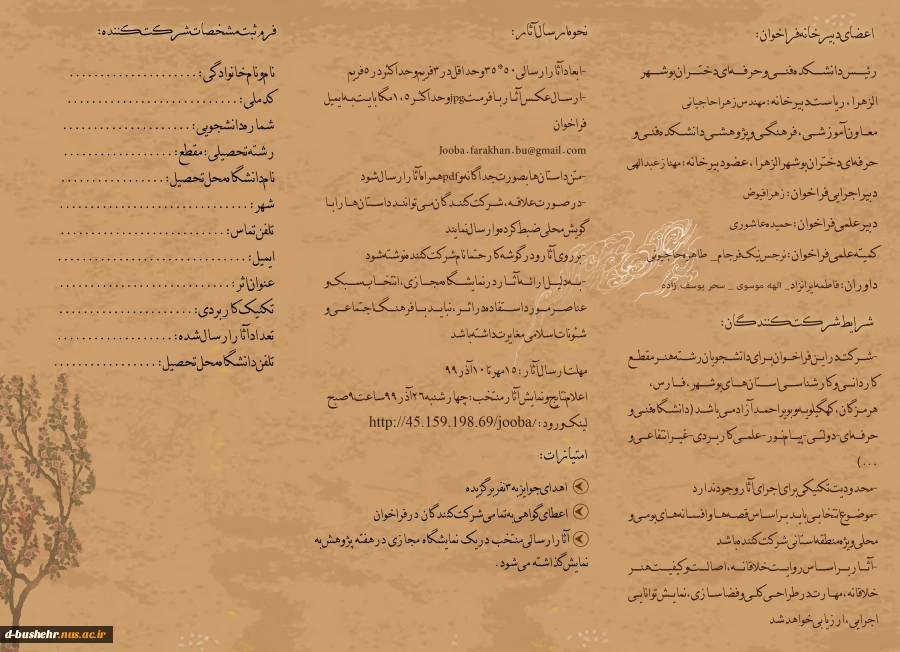 اعضای دبیرخانه فراخوان:
رئیس دانشکده فنی و حرفه‌ای دختران بوشهر
الزهرا، ریاست دبیرخانه: مهندس زهرا حاجیانی
معاون آموزشی، فرهنگی و پژوهشی دانشکده فنی و
حرفه‌ای دختران بوشهر الزهرا، عضو دبیرخانه: مهناز عبدالهی
دبیر اجرایی فراخوان: زهرا فیوض
دبیر علمی فراخوان: حمیده عاشوری
کمیته علمی فراخوان: نرجس نیک‌فرجام_ طاهره حاجیونی
داوران: فاطمه ایرانزاد_ الهه موسوی _ سحر یوسف زاده
شرایط شرکت کنندگان:
-شرکت در این فراخوان برای دانشجویان رشته هنر مقطع
کاردانی و کارشناسی استان‌های بوشهر، فارس،
هرمزگان، کهگیلویه و بویراحمد آزاد می‌باشد (دانشگاه فنی و
حرفه‌ای- دولتی- پیام نور- علمی کاربردی- غیرانتفاعی و
...)
-محدودیت تکنیکی برای اجرای آثار وجود ندارد
-موضوع انتخابی باید بر اساس قصه‌ها و افسانه‌های بومی و
محلی ویژه منطقه استانی شرکت کننده باشد
-آثار بر اساس روایت خلاقانه، اصالت و کیفیت هنر
خلاقانه، مهارت در طراحی کلی و فضاسازی، نمایش توانایی
اجرایی، ارزیابی خواهد شد
نحوه ارسال آثار:
-ابعاد آثار ارسالی ۵۰*۳۵ و حداقل در ۳ فریم و حداکثر در ۵ فریم
-ارسال عکس آثار با فرمت jpg و حداکثر ۱.۵ مگابایت به ایمیل
فراخوان
Jooba.farakhan.bu@gmail.com
-متن داستان‌ها بصورت جداگانه و pdf همراه آثار ارسال شود
-در صورت علاقه، شرکت کنندگان می‌توانند داستان‌ها را با
گویش محلی ضبط کرده و ارسال نمایند
-بر روی آثار و در گوشه کار حتما نام شرکت کننده نوشته شود
-به دلیل ارائه آثار در نمایشگاه مجازی، انتخاب سبک و
عناصر مورد استفاده در اثر، نباید با فرهنگ اجتماعی و
شئونات اسلامی مغایرت داشته باشد
مهلت ارسال آثار: ۱۵ مهر تا ۱۰ آذر ۹۹
اعلام نتایج و نمایش آثار منتخب: چهارشنبه ۲۶ آذر ۹۹ ساعت ۹ صبح
لینک ورود: http://45.159.198.69/jooba/
امتیازات:
اهدای جوایز به ۳ نفر برگزیده
اعطای گواهی به تمامی شرکت کنندگان در فراخوان
آثار ارسالی منتخب در یک نمایشگاه مجازی در هفته پژوهش به
نمایش گذاشته می‌شود.
فرم ثبت مشخصات شرکت کننده:
نام و نام خانوادگی: ......................
کد ملی: ..............................
شماره دانشجویی: ......................
رشته تحصیلی: مقطع: ...................
نام دانشگاه محل تحصیل: ..................
شهر: ................................
تلفن تماس: ............................
ایمیل: ................................
عنوان اثر: .............................
تکنیک کاربردی: ........................
تعداد آثار ارسال شده: ....................
تلفن دانشگاه محل تحصیل: ..................
d-bushehr.nus.ac.ir